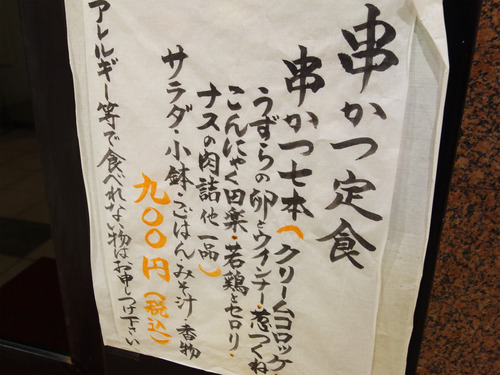 串かつ定食
串かつ七本(クリームコロッケ
うずらの卵とウインナー・葱つくね
こんにゃく田楽・若鶏とセロリ・
ナスの肉詰他一品)
サラダ・小鉢・ごはん・みそ汁・香物
九〇〇円(税込)
アレルギー等で食べれない物はお申しつけ下さい